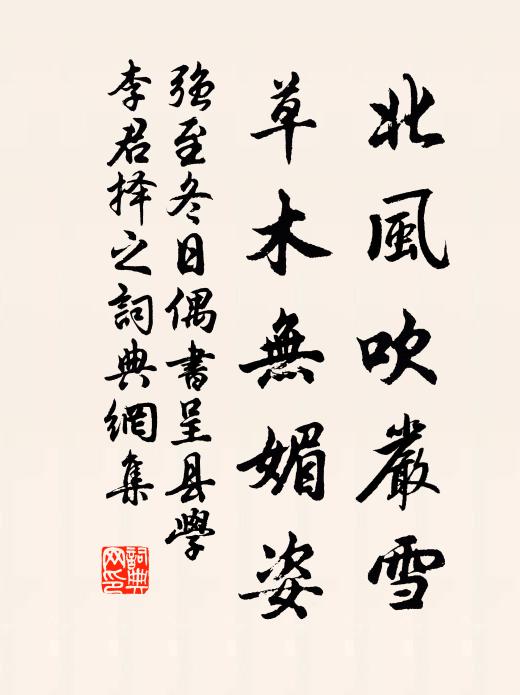 北風吹嚴雪
草木無媚姿
強至冬日偶書呈县學
李君择之詞典網集
詞典
网印